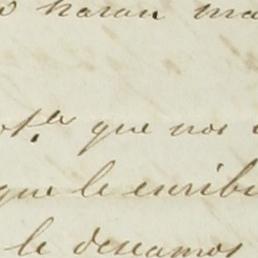 haran
que nos
que le escrib
le deseamos